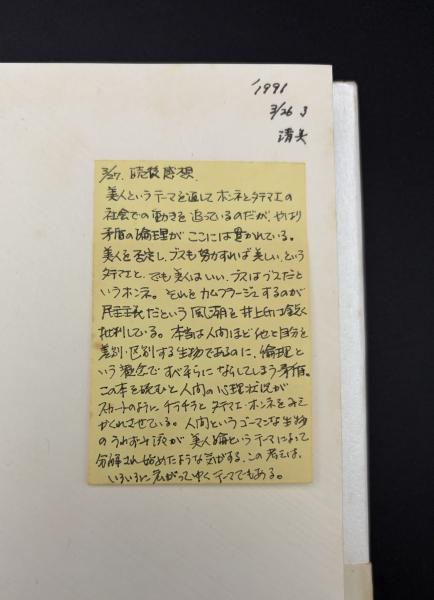 1991
3/26
清美
3/27. 読後感想.
美人というテーマを通してホンネとタテマエの
社会での動きを追っているのだが、やはり
矛盾の倫理がここには貫かれている。
美人を否定し、ブスも努力すれば美しい、という
タテマエと、でも美人はいい、ブスはブスだと
いうホンネ。それをカムフラージュするのが
民主主義だという風潮を井上氏は鋭く
批判している。本当は人間ほど他と自分を
差別・区別する生物であるのに、倫理と
いう観念で ならしてしまう矛盾。
この本を読むと人間の心理状況が
スカートのように チラチラと タテマエ・ホンネをみえ
かくれさせている。人間というゴーマンな生物
の が 美人論というテーマによって
分解され始めたような気がする。この考えは、
いろいろに広がってゆくテーマでもある。